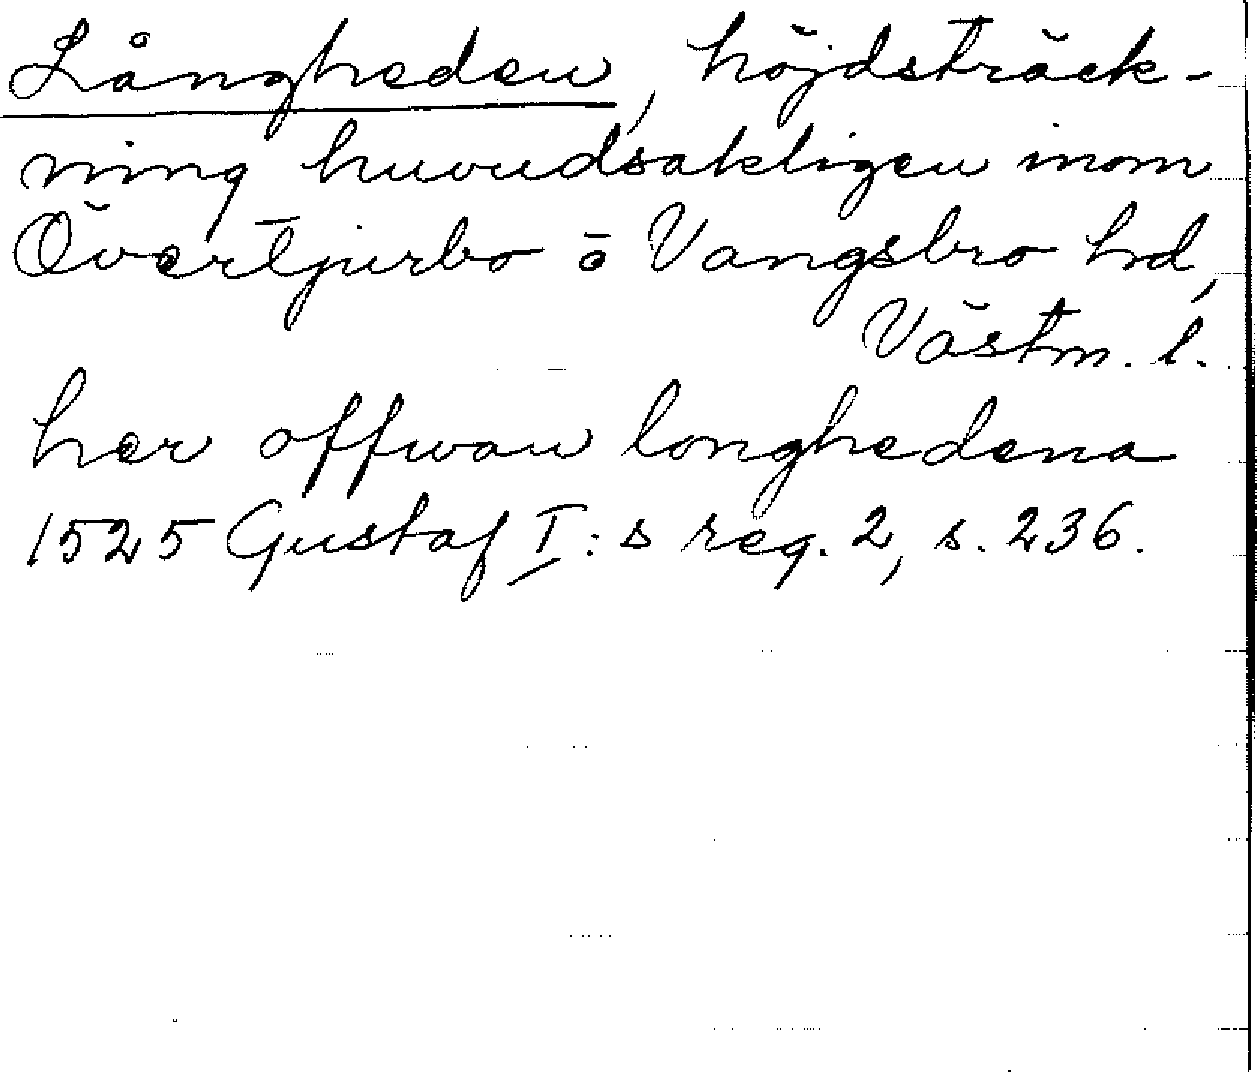 Långheden, höjdsträck-
ning huvudsakligen inom
Övertjurbo o Vangsbro hd,
Västm. l.
her offwan longhedena
1525 Gustaf I:s reg. 2, s. 236.